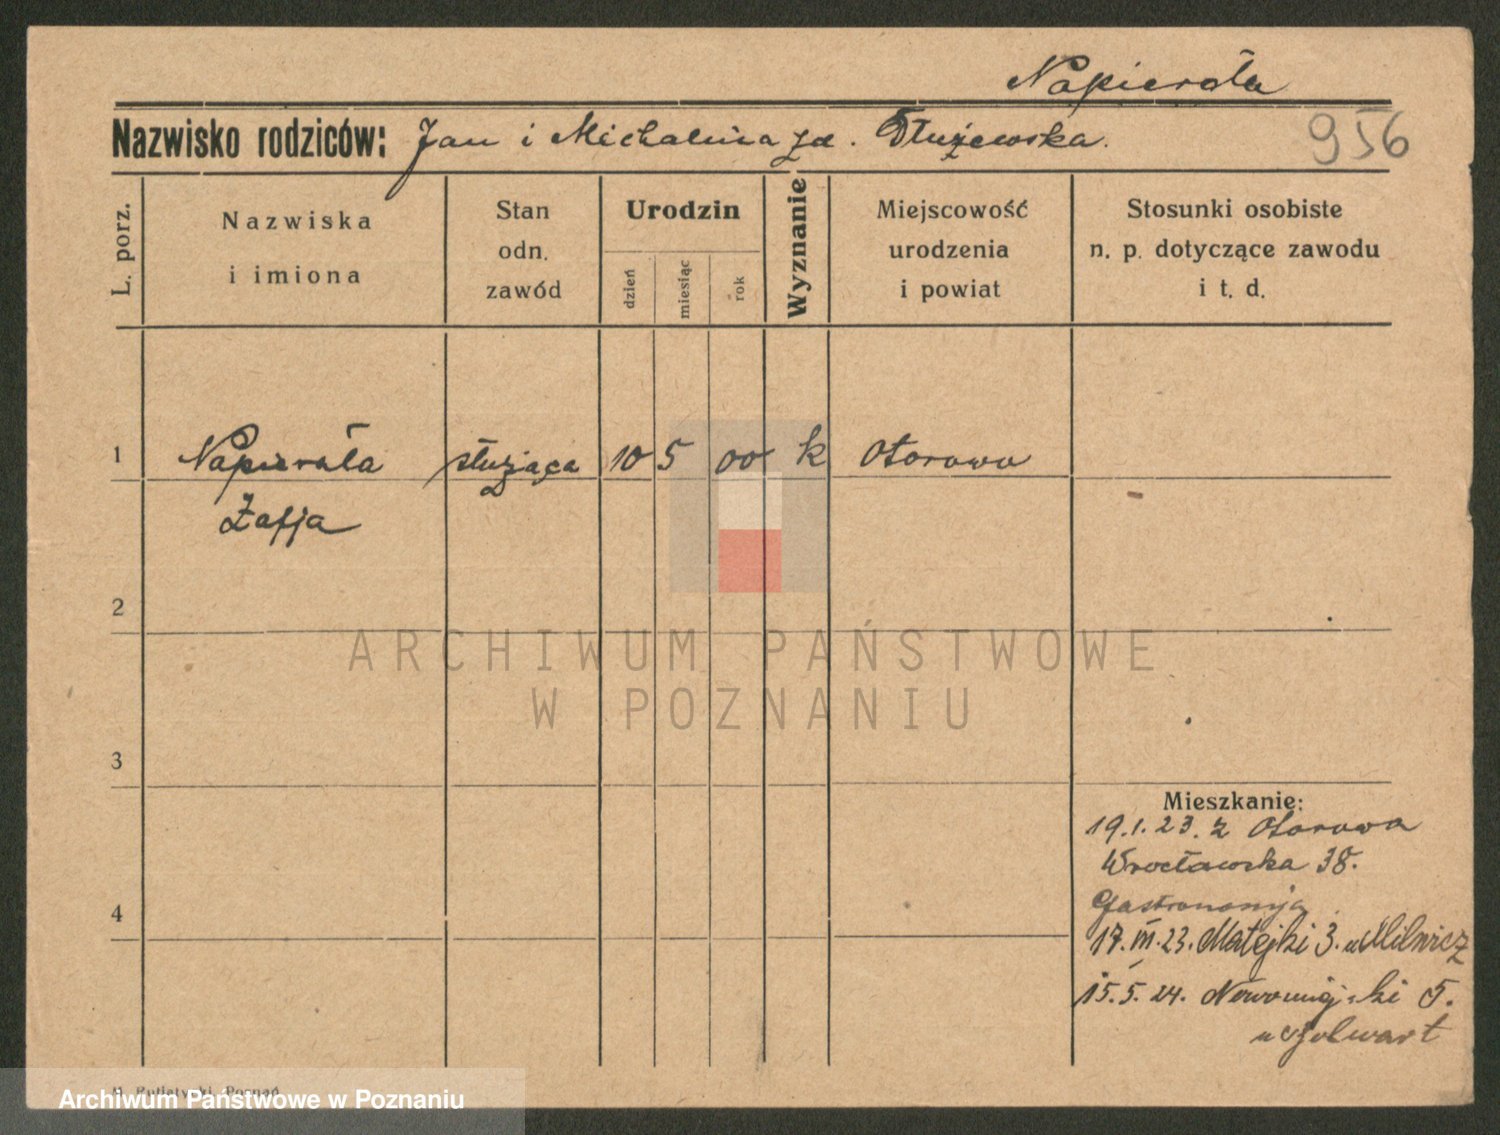 Napierała
Nazwisko rodziców: Jan i Michalina zd. Dłużewska.
956
L. porz.
Nazwiska
i imiona
Stan
odn.
zawód
Urodzin
dzień
miesiąc
rok
Wyznanie
Miejscowość
urodzenia
i powiat
Stosunki osobiste
n. p. dotyczące zawodu
i t. d.
1 Napierała służąca 10 5 00 k Otorowo
Zofja
2
3
4
Mieszkanie:
19.1.23. z Otorowa
Wrocławska 38.
Gastronomja
17.III.23. Matejki 3. u Milnicz
15.5.24. Nowomiejski 5.
u
ARCHIWUM PAŃSTWOWE
W POZNANIU
Poznań
Archiwum Państwowe w Poznaniu